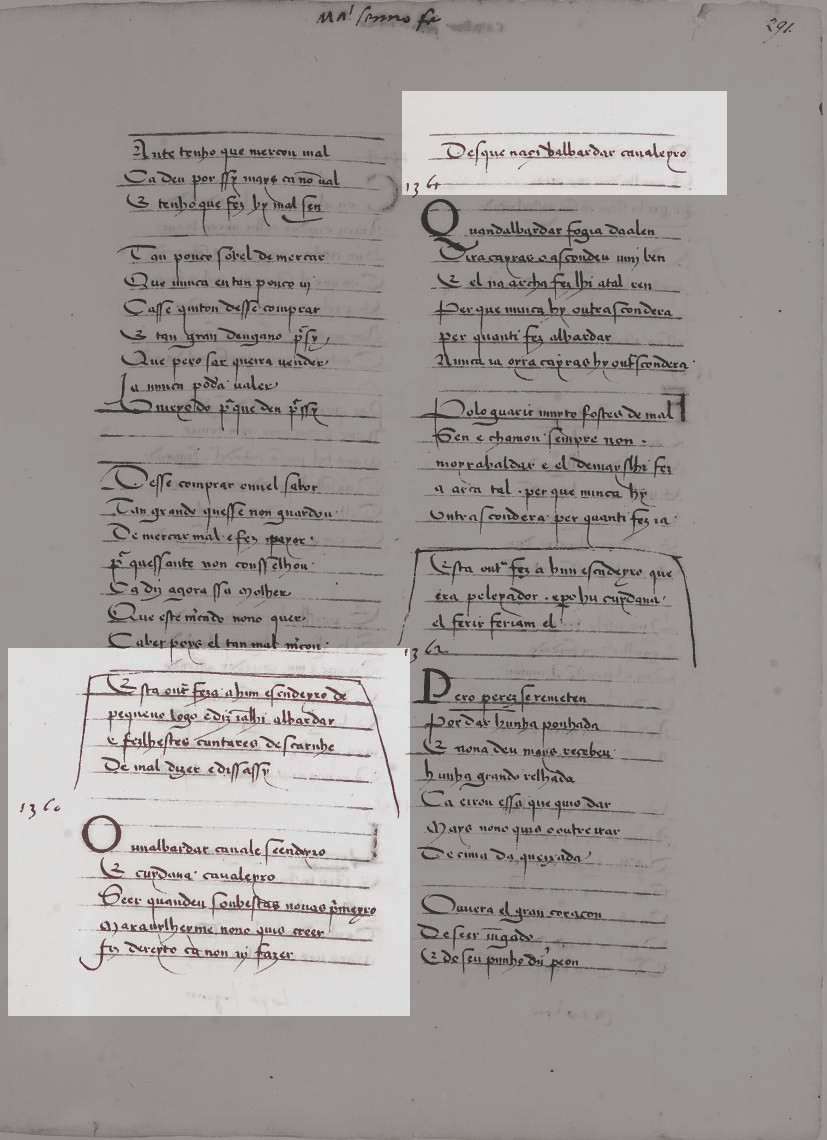 Mart senno fr
291.
Ante tenho que mercou mal
Ca deu por ssy mays ca nō ual
E tenho que fez hy mal sen
Tan pouco sobel de mercar
Que nunca en tan pouco ui
Casse quiton desse comprar
E tan gran dengano pr̄ ssy
Que pero sar queira uender
Ia nunca poda ualer
O meyo do pr̄ que deu pr̄ ssy
Desse comprar ouuel sabor
Tan grande quesse non guardou
De mercar mal e fez peyor
pr̄ quessante non consselhou
Ca dij agora ssa molher
Que este m̄cado nono quer
Caber poys el tan mal m̄cou
Esta outr̄ feza ahun escudeyro de
pequeno logo e diziālhi albardar
e fezlhestes cantares descarnhe
De mal dizer e dissassy
1360
Ounalbardar canale seendeyro
E cuydaua caualeyro
Seer quandeu soubestas nouas pr̄meyro
Marauilheyme nono quis creer
fiz dereyto ca non ui fazer
Desque naçi dalbardar caualeyro
1361
Quandalbardar fogia daalen
Tira capras e ascondeu umj ben
E el na archa fez lhi atal ren
Per que nunca hy outrascondera
per quanti fez albardar
Nunca ia orra capras hy outscondera
Polo guarir muyto fostes de mal
Sen e chamou sempre non
moyrabaldar e el demayslhi fez
a arca tal . per que nunca hy
Outrascondera per quanti fez ia
Esta outr̄ fez a hun escudeyro que
era pelejador . e pero hu cuydaua
el ferir feriam el
1362
Pero perez se remeten
Por dar hunha punhada
E nona deu mays recebeu
hunha grande relhada
Ca eirou essa que quis dar
Mays nono quis o outre errar
De cima da queixada
Ouuera el gran coraçon
De seer uīgado
E de seu punho dū peon